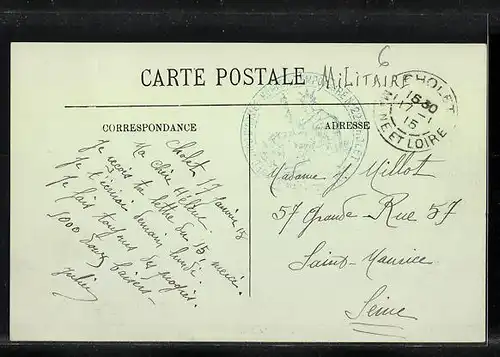 6
CARTE POSTALE MiLiTAIRE
CHOLET
15 30
17 - 1
15
MAINE ET LOIRE
CORRESPONDANCE
ADRESSE
Cholet 17 Janvier 15
Ma chère Hélène
Je reçois ta lettre du 15, merci.
Je t'écrirai demain lundi.
Je fais toujours des progrès.
1000 doux baisers
Julien
Madame J. Millot
57 Grande Rue 57
Saint-Maurice
Seine